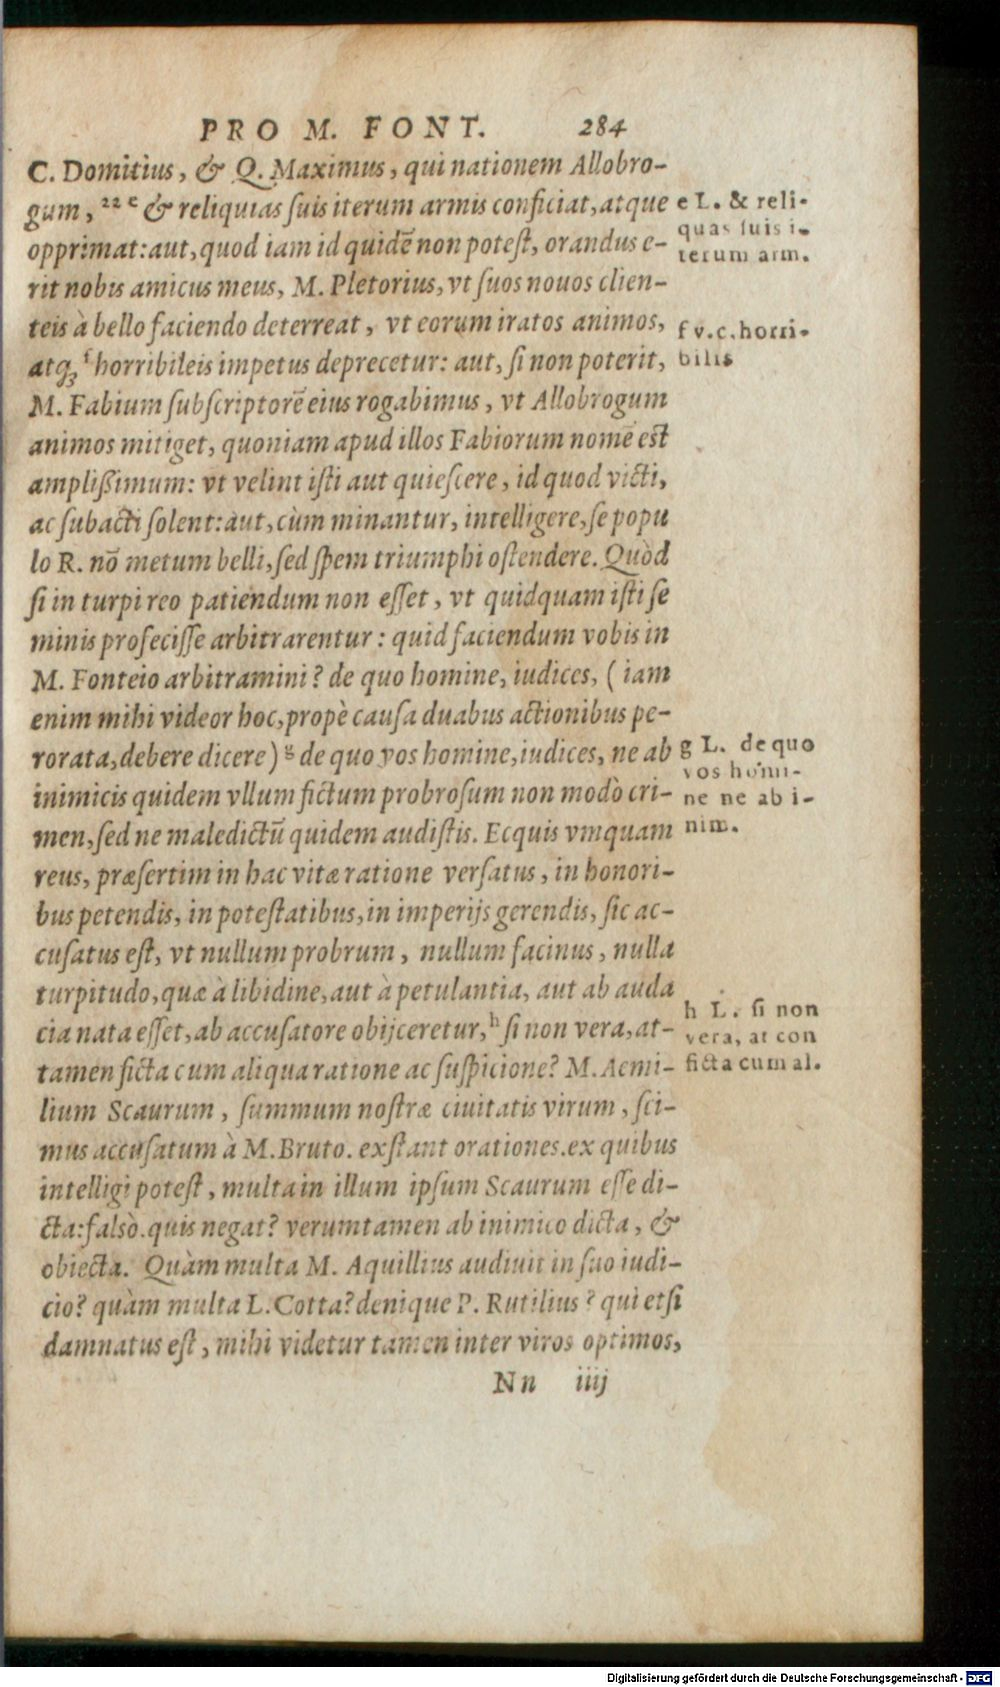 PRO M. FONT. 284
C. Domitius, & Q. Maximus, qui nationem Allobro-
gum, ²² ᵉ & reliquias ſuis iterum armis conficiat, atque
opprimat: aut, quod iam id quidē non poteſt, orandus e-
rit nobis amicus meus, M. Pletorius, vt ſuos nouos clien-
teis à bello faciendo deterreat, vt eorum iratos animos,
atqꝫ ᶠ horribileis impetus deprecetur: aut, ſi non poterit,
M. Fabium ſubſcriptorē eius rogabimus, vt Allobrogum
animos mitiget, quoniam apud illos Fabiorum nomē est
ampliſſimum: vt velint iſti aut quieſcere, id quod victi,
ac ſubacti ſolent: aut, cùm minantur, intelligere, ſe popu
lo R. nō metum belli, ſed ſpem triumphi oſtendere. Quòd
ſi in turpi reo patiendum non eſſet, vt quidquam iſti ſe
minis profeciſſe arbitrarentur: quid faciendum vobis in
M. Fonteio arbitramini? de quo homine, iudices, (iam
enim mihi videor hoc, propè cauſa duabus actionibus pe-
rorata, debere dicere) ᵍ de quo vos homine, iudices, ne ab
inimicis quidem vllum fictum probroſum non modò cri-
men, ſed ne maledictū quidem audiſtis. Ecquis vmquam
reus, præſertim in hac vitæ ratione verſatus, in honori-
bus petendis, in poteſtatibus, in imperijs gerendis, ſic ac-
cuſatus eſt, vt nullum probrum, nullum facinus, nulla
turpitudo, quæ à libidine, aut à petulantia, aut ab auda
cia nata eſſet, ab accuſatore obijceretur, ʰ ſi non vera, at-
tamen ficta cum aliqua ratione ac ſuſpicione? M. Aemi-
lium Scaurum, ſummum noſtræ ciuitatis virum, ſci-
mus accuſatum à M. Bruto. exſtant orationes. ex quibus
intelligi poteſt, multa in illum ipſum Scaurum eſſe di-
cta: falsò. quis negat? verumtamen ab inimico dicta, &
obiecta. Quàm multa M. Aquillius audiuit in ſuo iudi-
cio? quàm multa L. Cotta? denique P. Rutilius? qui etſi
damnatus eſt, mihi videtur tamen inter viros optimos,
Nn iiij
e L. & reli-
quas ſuis i-
terum arm.
f v.c. horri-
bilis
g L. de quo
vos homi-
ne ne ab i-
nim.
h L. ſi non
vera, at con
ficta cum al.
Digitalisierung gefördert durch die Deutsche Forschungsgemeinschaft - DFG